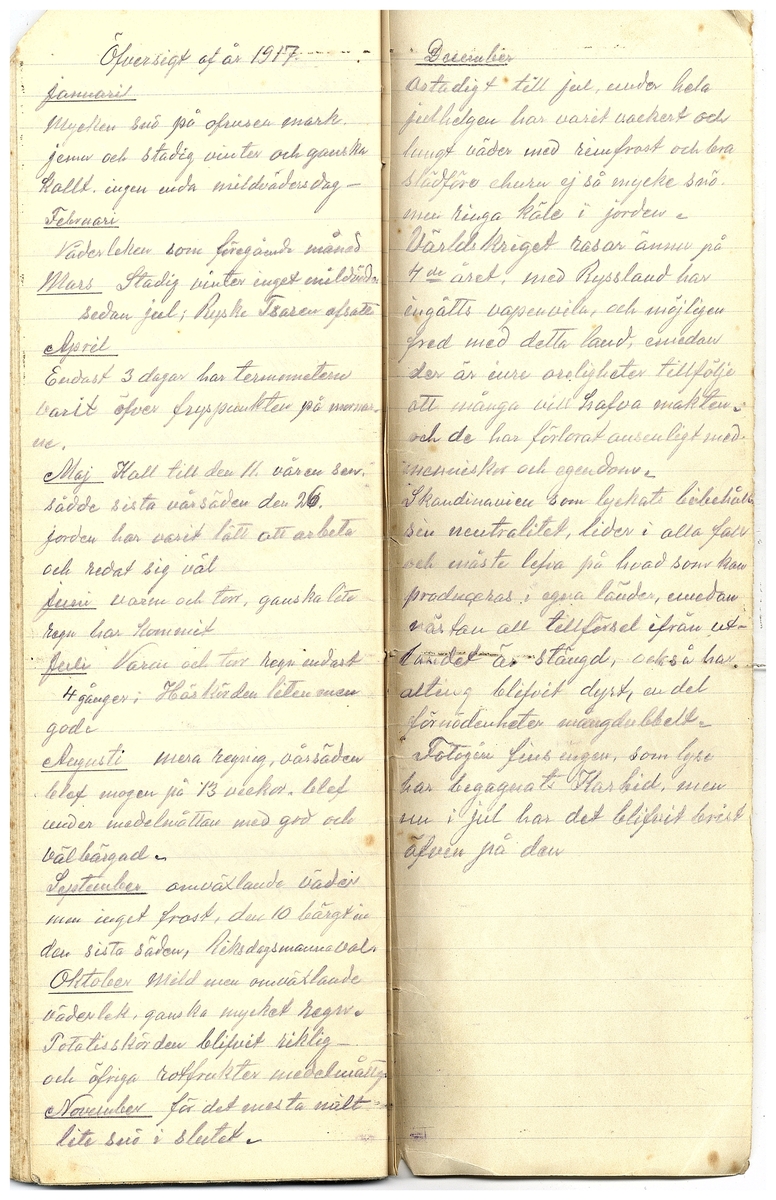 Öfversigt af år 1917.
Januari
Mycken snö på ofrusen mark.
jemn och stadig vinter och ganska
kallt. ingen enda mildvädersdag –
Februari
Väderleken som föregående månad
Mars Stadig vinter inget mildväder
sedan jul; Ryske Tsaren afsatt
April
Endast 3 dagar har termometern
varit öfver fryspunkten på mornar-
ne.
Maj Kall till den 11. våren sen.
sådde sista vårsäden den 26.
jorden har varit lätt att arbeta
och redat sig väl
Juni varm och torr, ganska lite
regn har kommit
Juli Varm och torr regn endast
4 gånger; Höskörden liten men
god.
Augusti mera regnig, vårsäden
blef mogen på 13 veckor. blef
under medelmåttan med god och
välbärgad.
September omväxlande väder
men inget frost, den 10 bärgt in
den sista säden, Riksdagsmannaval.
Oktober Mild men omväxlande
väderlek. ganska mycket regn.
Potatisskörden blifvit riklig
och öfriga rotfrukter medelmåttig
November för det mesta mält
lite snö i slutet.
December
Ostadigt till jul, under hela
julhelgen har varit vackert och
lungt väder med rimfrost och bra
slädföre churu ej så mycke snö.
men ringa käle i jorden.
Världskriget rasar ännu på
4de året, med Ryssland har
ingåtts vapenvila, och möjligen
fred med detta land, emedan
der är inre oroligheter tillfölje
att många vill hafva makten.
och de har förlorat ansenligt med
menniskor och egendom.
Skandinavien som lyckats bibehålla
sin neutralitet, lider i alla fall
och måste lefva på hvad som kan
produceras i egna länder, emedan
nästan all tillförsel ifrån ut-
landet är stängd, också har
alting blifvit dyrt, en del
förnödenheter mångdubbelt.
Fotogén fins ingen, som lyse
har begagnats Karbid, men
nu i jul har det blifvit brist
äfven på den